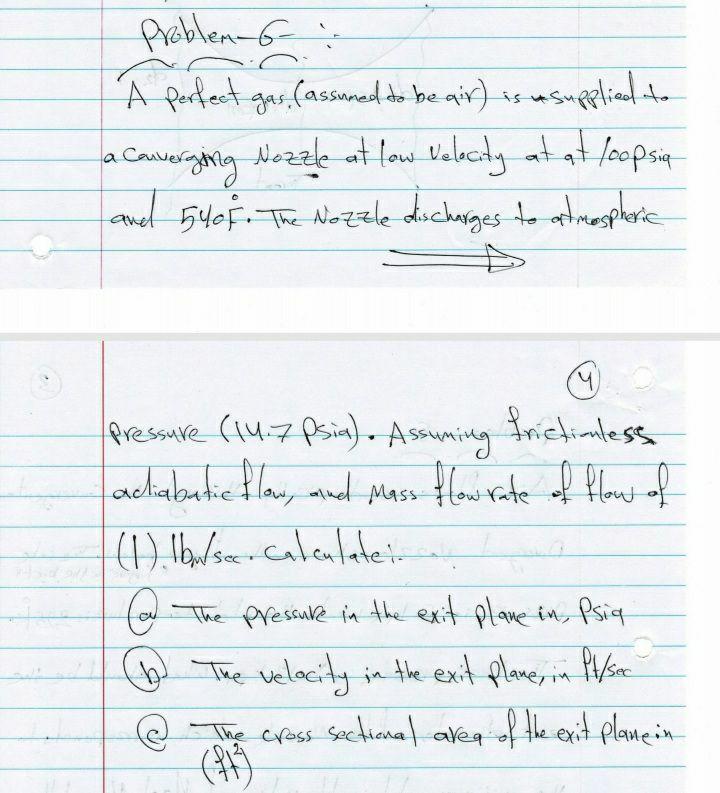 Problem-6- :-
A perfect gas, (assumed to be air) is supplied to
a converging Nozzle at low velocity at at 100psia
and 540°F. The Nozzle discharges to atmospheric
4
pressure (14.7 Psia). Assuming frictionless
adiabatic flow, and Mass flow rate of flow of
(1) lbm/sec. Calculate:.
a The pressure in the exit plane in, Psia
b The velocity in the exit plane, in ft/sec
c The cross sectional area of the exit plane in
(ft²)